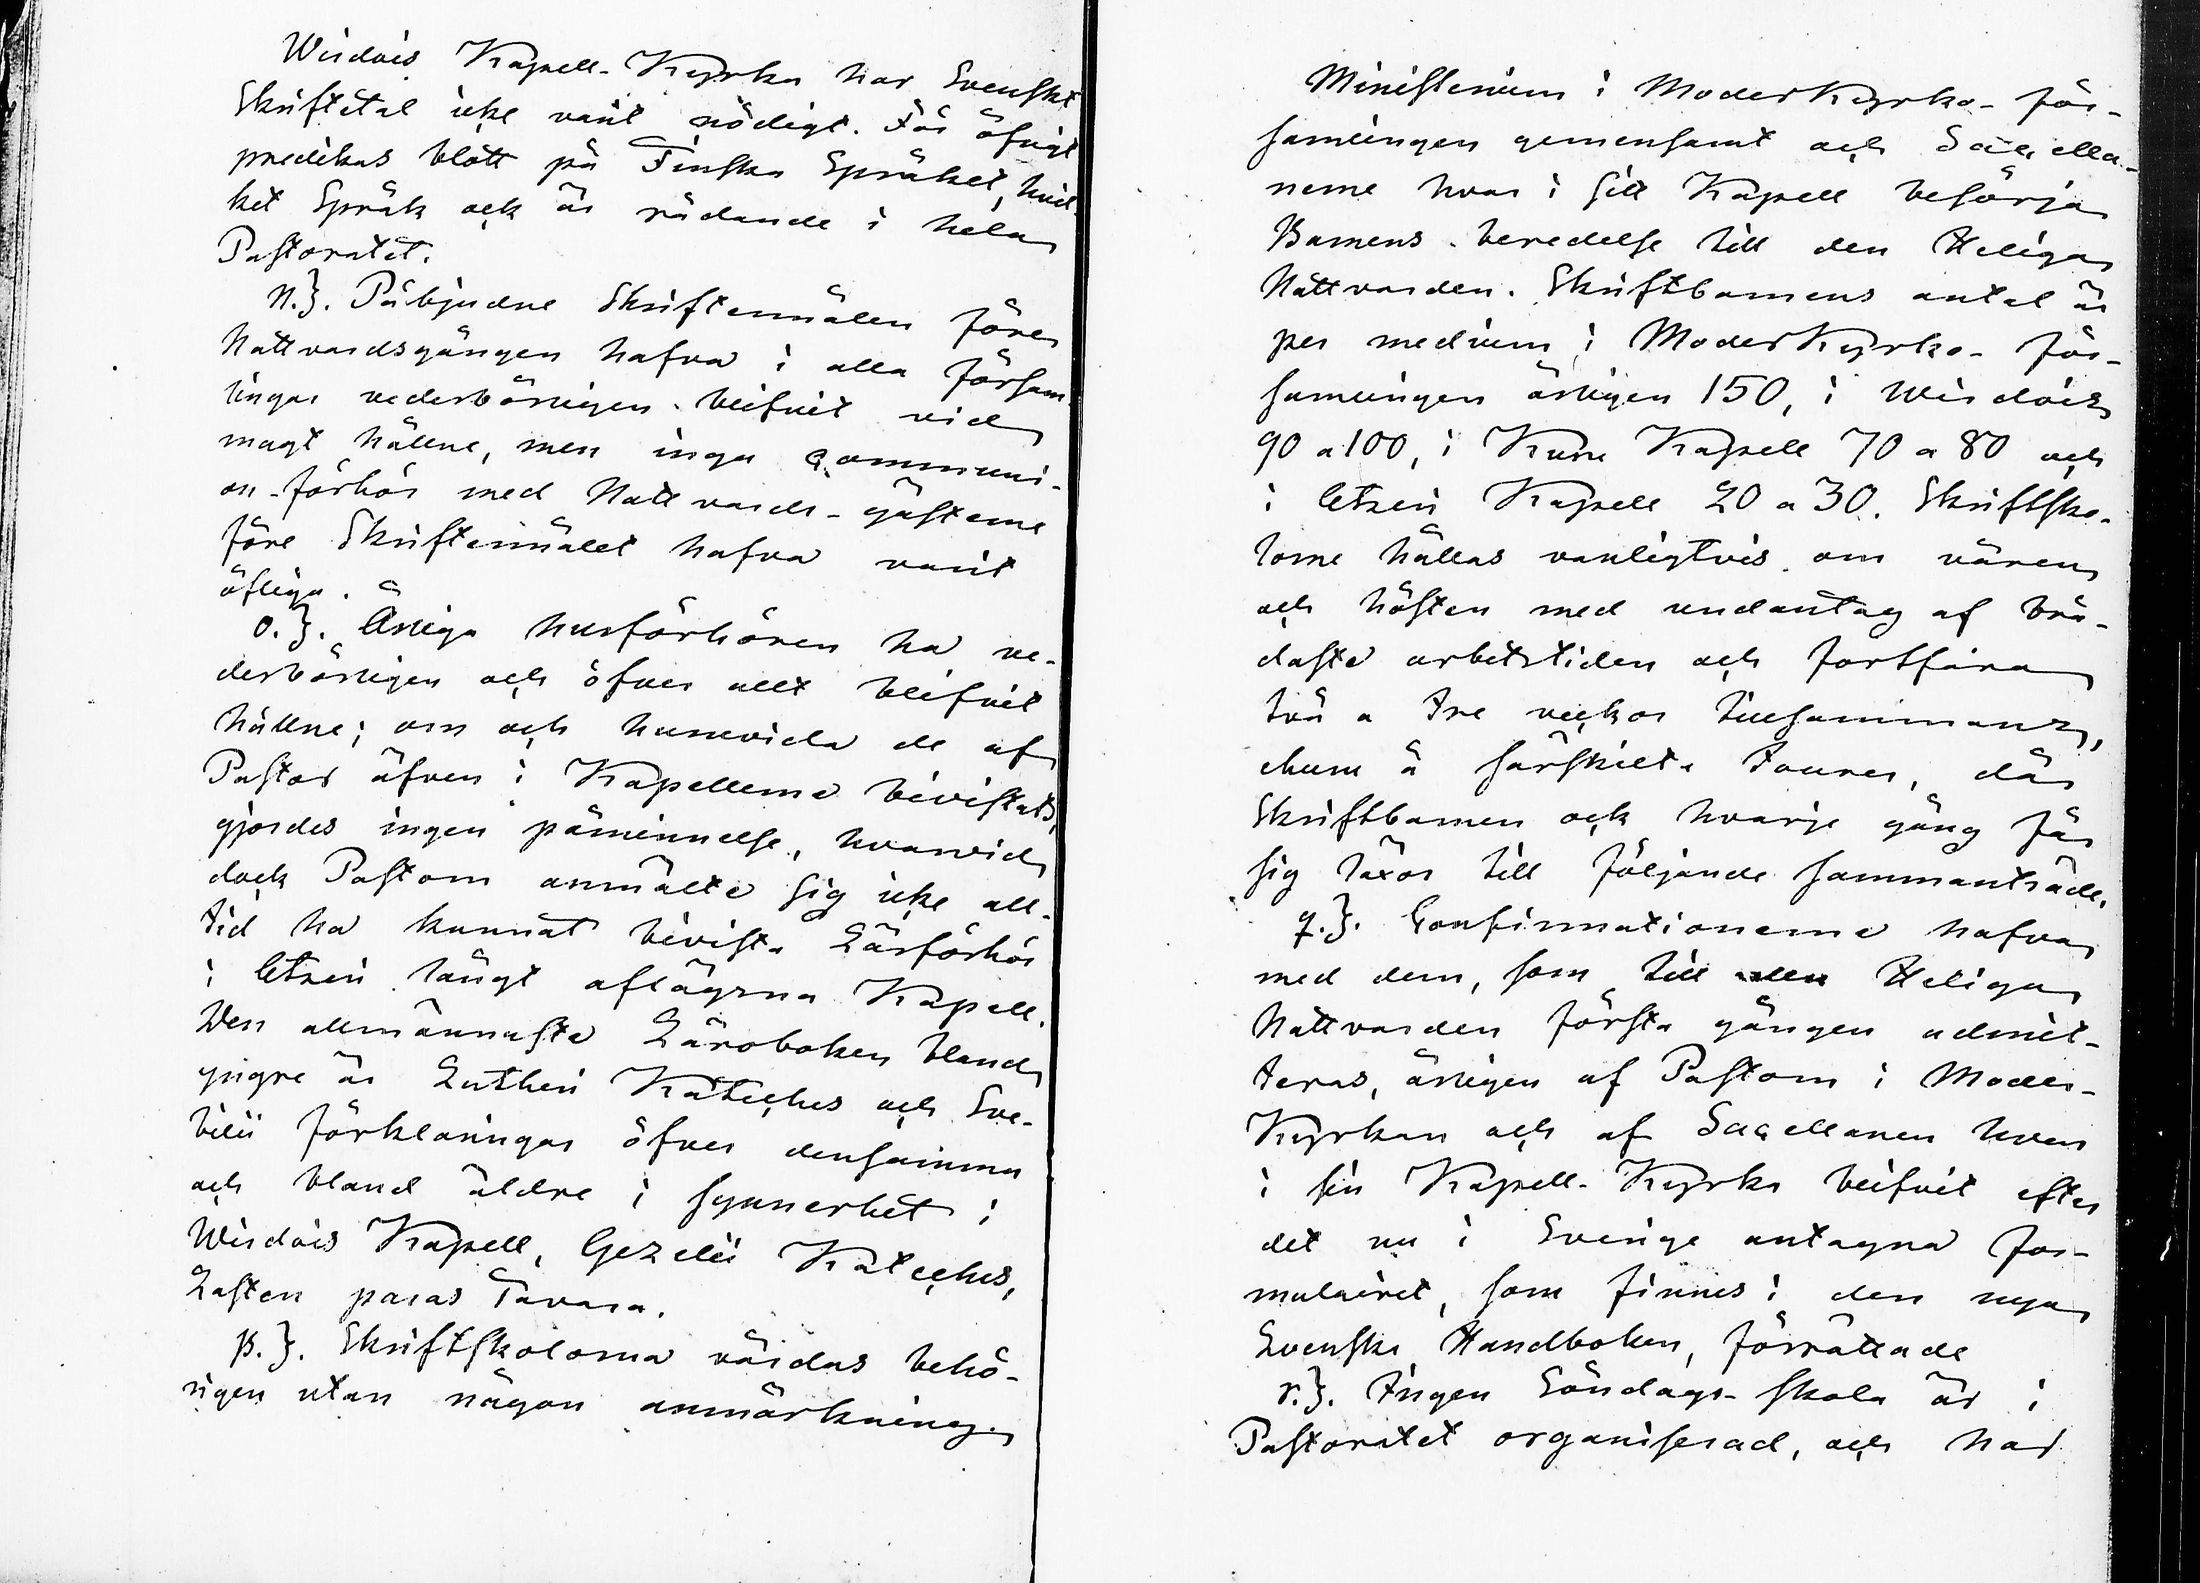 Wirdois Kapell-Kyrka har Svenskt
Skriftetal icke varit nödigt. För öfrigt
predikas blott på Finska Språket, hvil-
ket Språk ock är rådande i hela
Pastoratet.
n.}. Påbjudne Skriftermålen före
Nattvardsgången hafva i alla försam
lingar vederbörligen blifvit vid
magt hållne, men inga communi-
on-förhör med Nattvards-gästerne
före Skriftermålet hafva varit
öfliga.
o.}. Årliga husförhören ha ve-
derbörligen och öfver allt blifvit
hållne; om och huruvida de af
Pastor äfven i Kapellerne bivistats,
gjordes ingen påminnelse, hvarvid
dock Pastorn anmälte sig icke all-
tid ha kunnat bivista Läsförhör
i Etseri långt aflägsna Kapell.
Den allmännaste Läroboken bland
yngre är Lutheri Kateches och Sve-
bilii förklaringar öfver densamma
och bland äldre i synnerhet i
Wirdois Kapell, Gezelii Kateches,
Lasten paras Tavara.
p.}. Skriftskolorna vårdas behö-
rigen utan någon anmärkning.
Ministerium i ModerKyrko-för-
samlingen gemensamt och Sacella-
nerne hvar i sitt Kapell besörja
Barnens beredelse till den Heliga
Nattvarden. Skriftbarnens antal är
per medium i ModerKyrko-för-
samlingen årligen 150, i Wirdois
90 a 100, i Kuru Kapell 70 a 80 och
i Etseri Kapell 20 a 30. Skriftsko-
lorne hållas vanligtvis om våren
och hösten med undantag af brå-
daste arbetstiden och fortfara
två a tre veckor tillsammans,
ehuru å särskilte tourer, där
Skriftbarnen ock hvarje gång få
sig läxor till följande sammanträde.
q.}. Confirmationerne hafva
med dem, som till den Heliga
Nattvarden första gången admit-
teras, årligen af Pastorn i Moder-
Kyrkan och af Sacellanen hvar
i sin Kapell-Kyrka blifvit efter
det nu i Sverige antagna for-
mulairet, som finnes i den nya
Svenska Handboken, förrättade
r.}. Ingen Söndags-skola är i
Pastoratet organiserad, och har